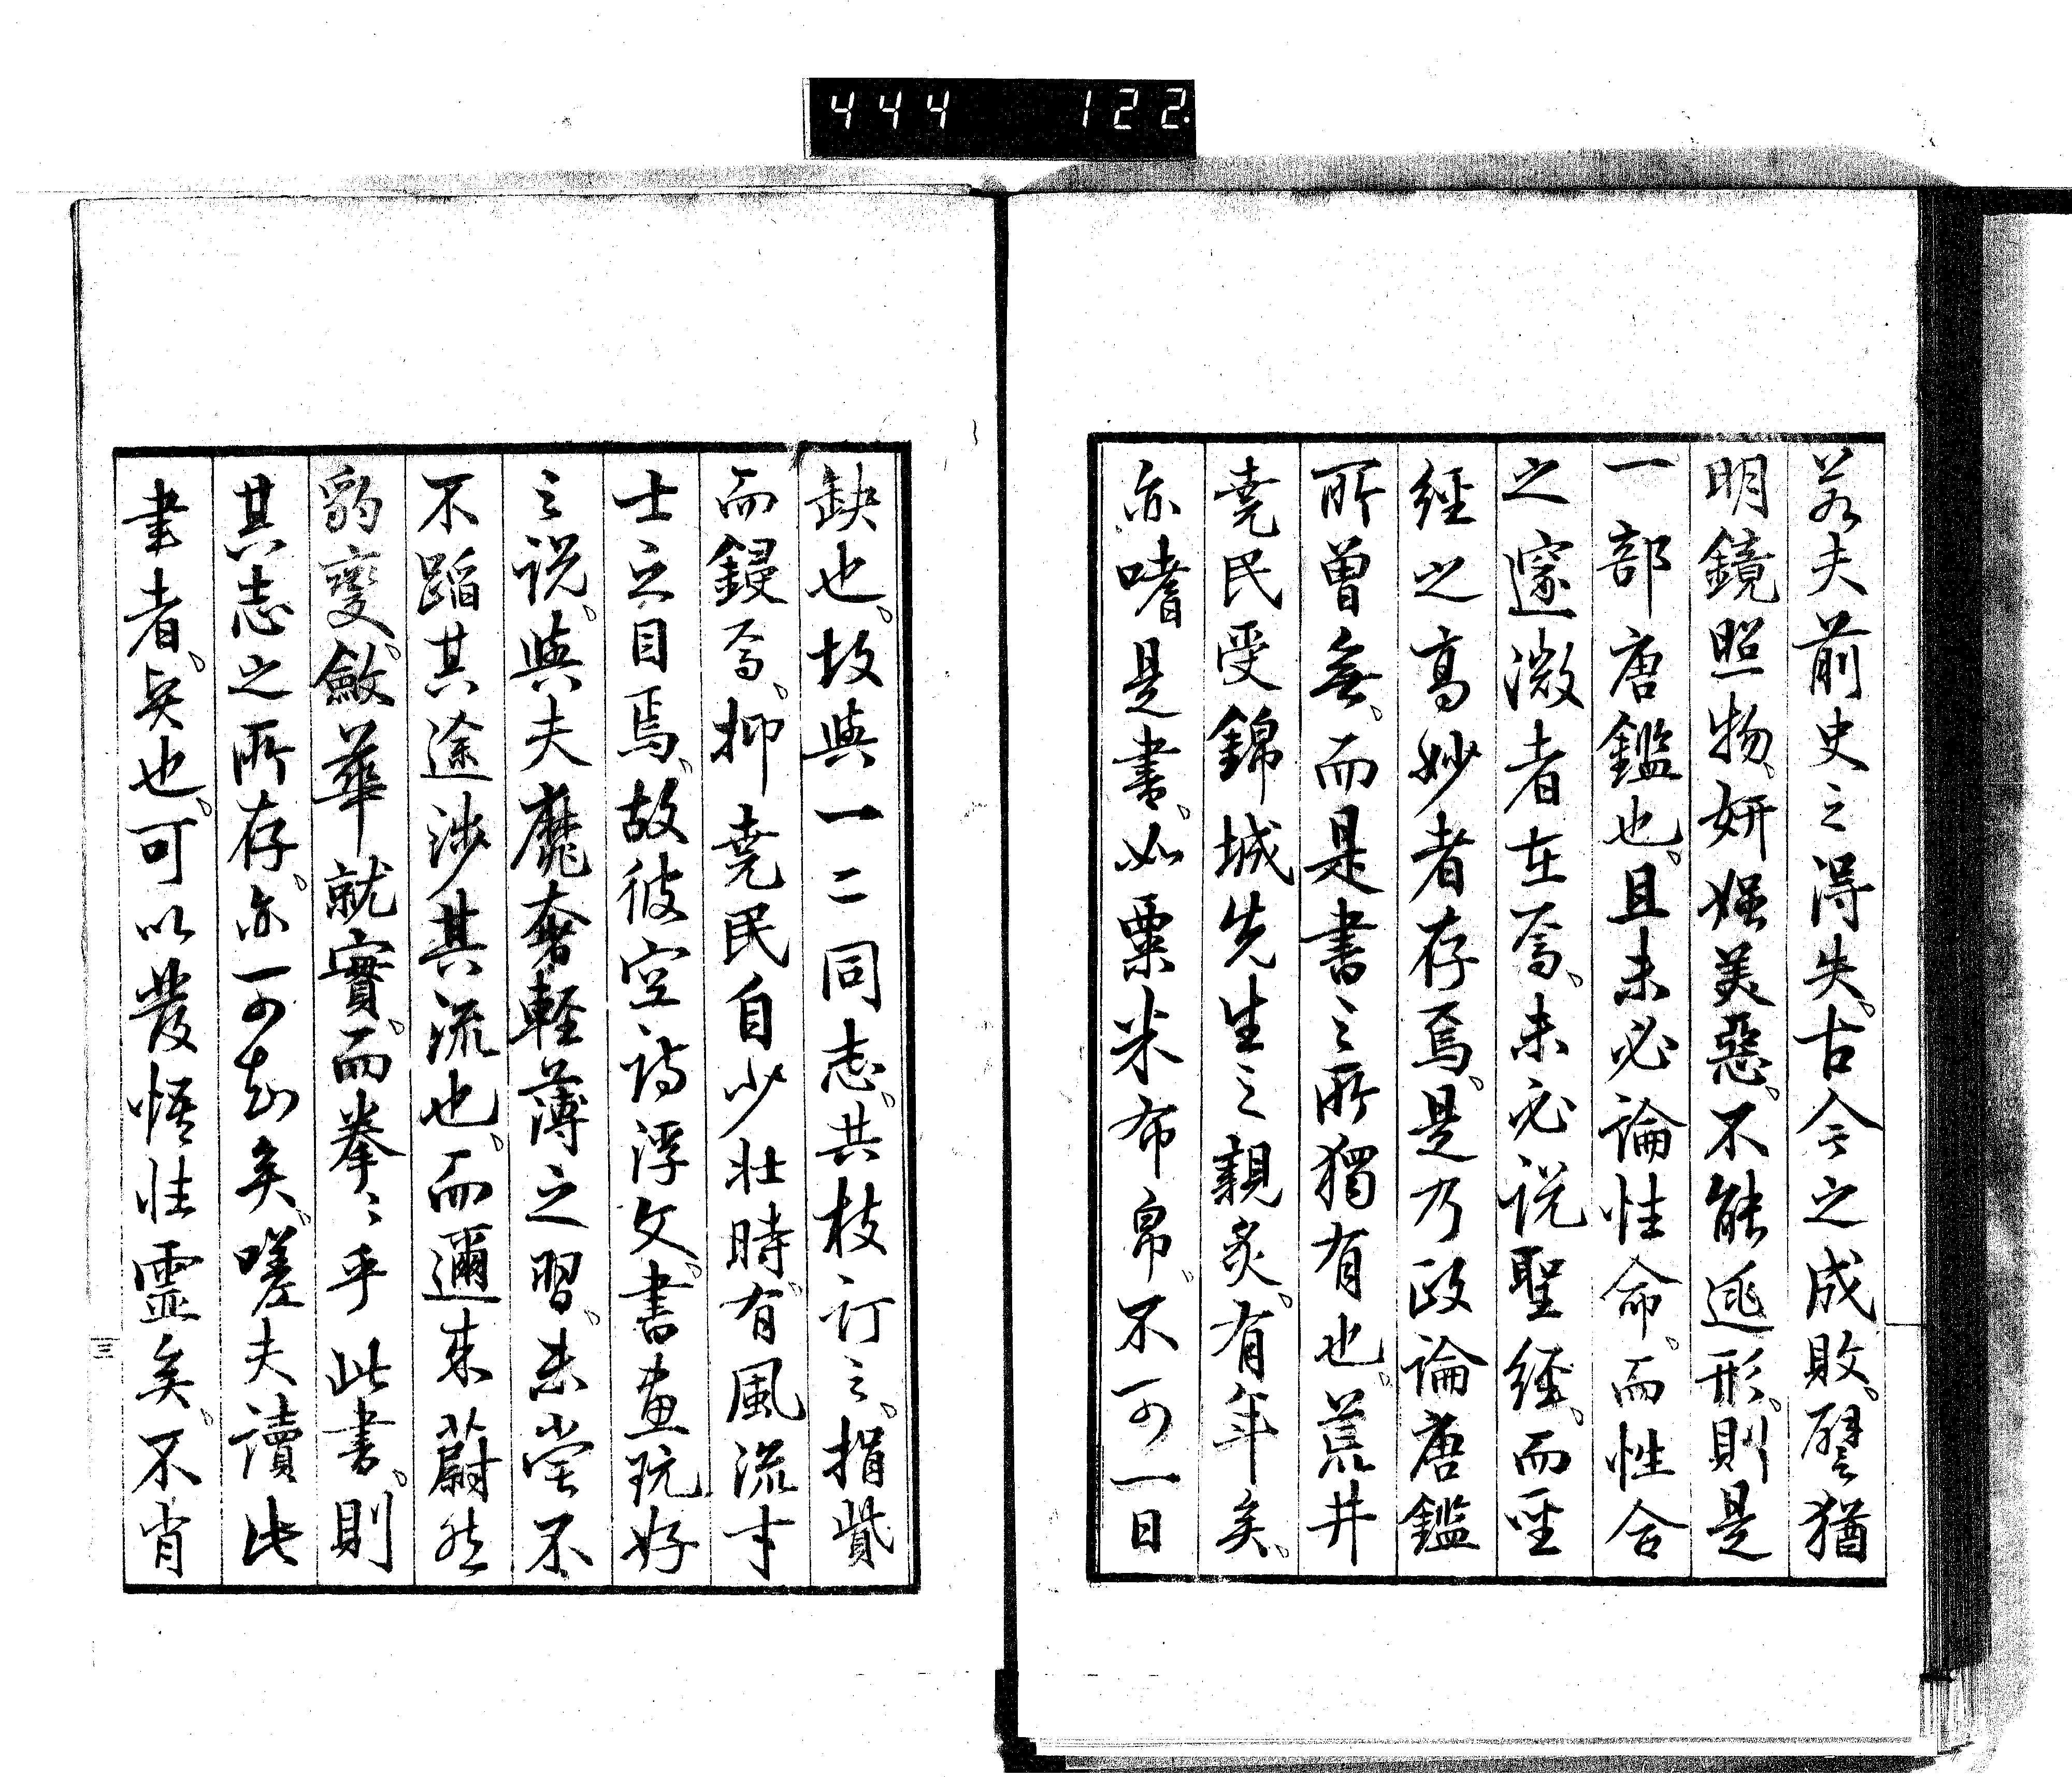 444 122
若夫前史之得失、古今之成敗、譬猶
明鏡照物、妍媸美惡、不能逃形、則是
一部唐鑑也、且未必論性命、而性命
之邃微者在焉、未必說聖經、而聖
經之高妙者存焉、是乃政論唐鑑
所曽無、而是書之所獨有也、荒井
堯民受錦城先生之親炙、有年矣、
亦嗜是書、如粟米布帛、不可一日
缺也、故與一二同志、共校訂之、捐貲
而鋟焉、抑堯民自少壯時、有風流才
士之目焉、故彼空詩浮文、書畫玩好
之說、與夫靡奢輕薄之習、未嘗不
不蹈其途涉其流也、而邇来蔚然
豹變、斂華就實、而拳々乎此書、則
其志之所存、亦可知矣、嗟夫讀此
書者、吳也、可以發悟性靈矣、不肖
三